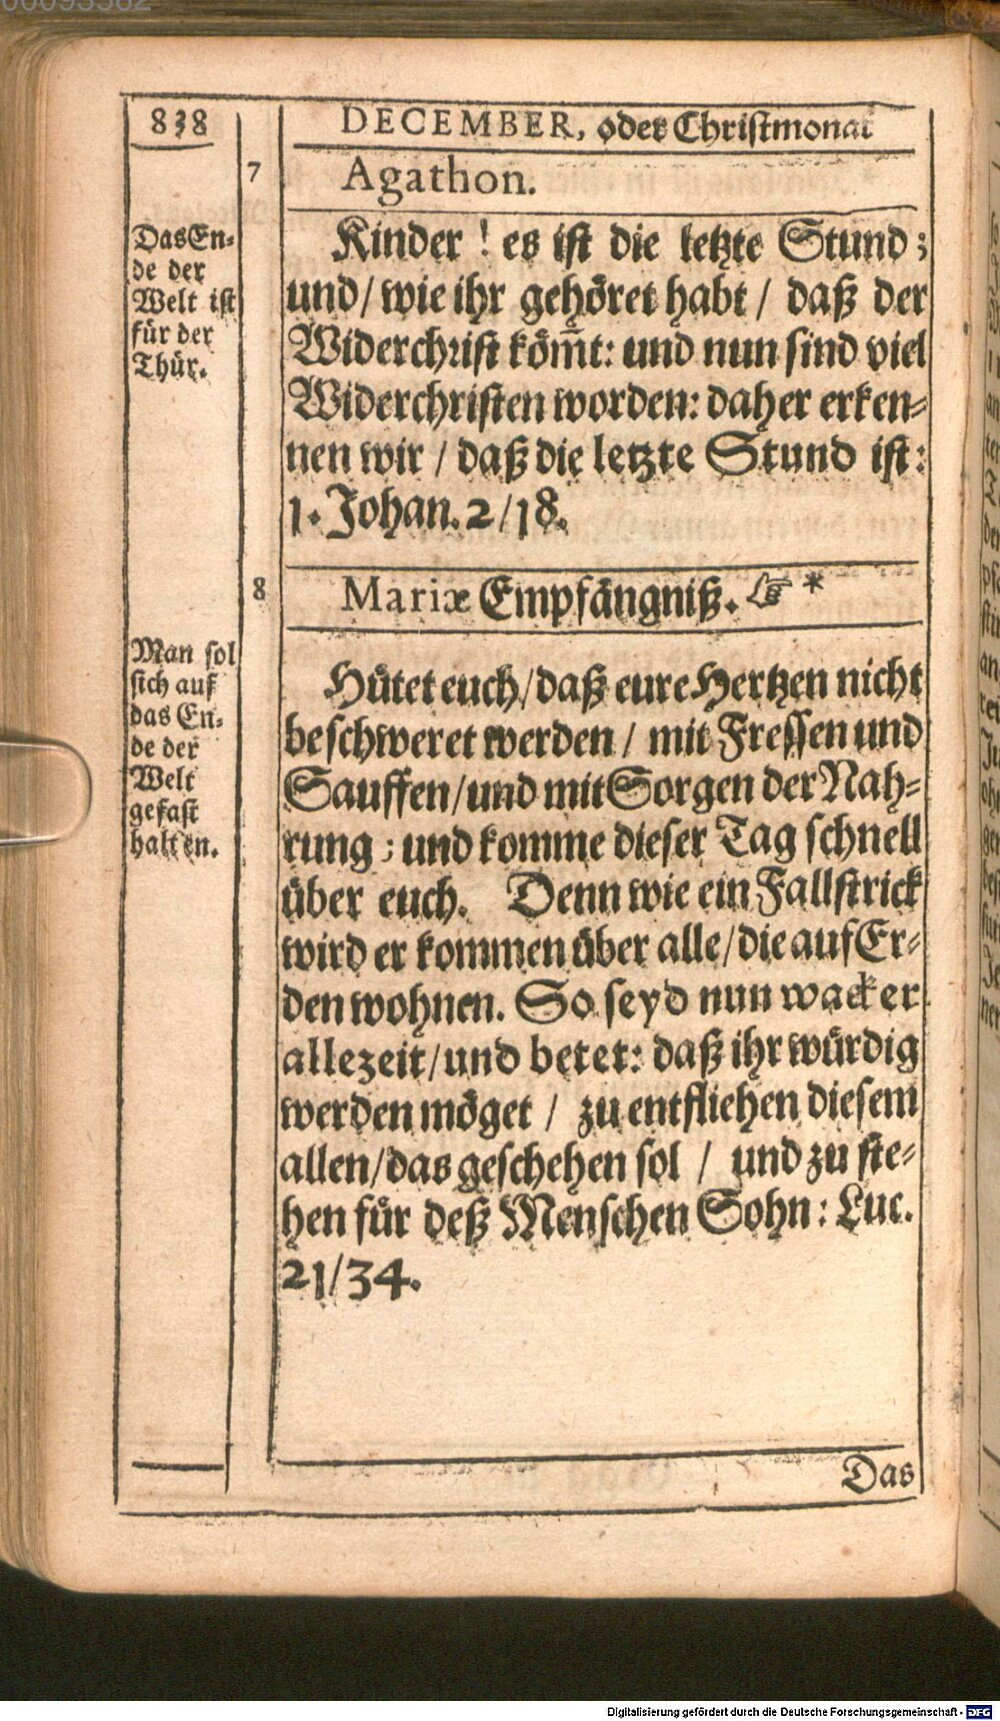 838
DECEMBER, oder Christmonat
7
Agathon.
Das En-
de der
Welt ist
für der
Thür.
Kinder! es ist die letzte Stund;
und/ wie ihr gehöret habt/ daß der
Widerchrist köm̃t: und nun sind viel
Widerchristen worden: daher erken-
nen wir/ daß die letzte Stund ist:
1. Johan. 2/18.
8
Mariæ Empfängniß. ☞ *
Man sol
sich auf
das En-
de der
Welt
gefast
halten.
Hütet euch/ daß eure Hertzen nicht
beschweret werden/ mit Fressen und
Sauffen/ und mit Sorgen der Nah-
rung; und komme dieser Tag schnell
über euch. Denn wie ein Fallstrick
wird er kommen über alle/ die auf Er-
den wohnen. So seyd nun wacker
allezeit/ und betet: daß ihr würdig
werden möget/ zu entfliehen diesem
allen/ das geschehen sol/ und zu ste-
hen für deß Menschen Sohn: Luc.
21/34.
Das
Digitalisierung gefördert durch die Deutsche Forschungsgemeinschaft - DFG